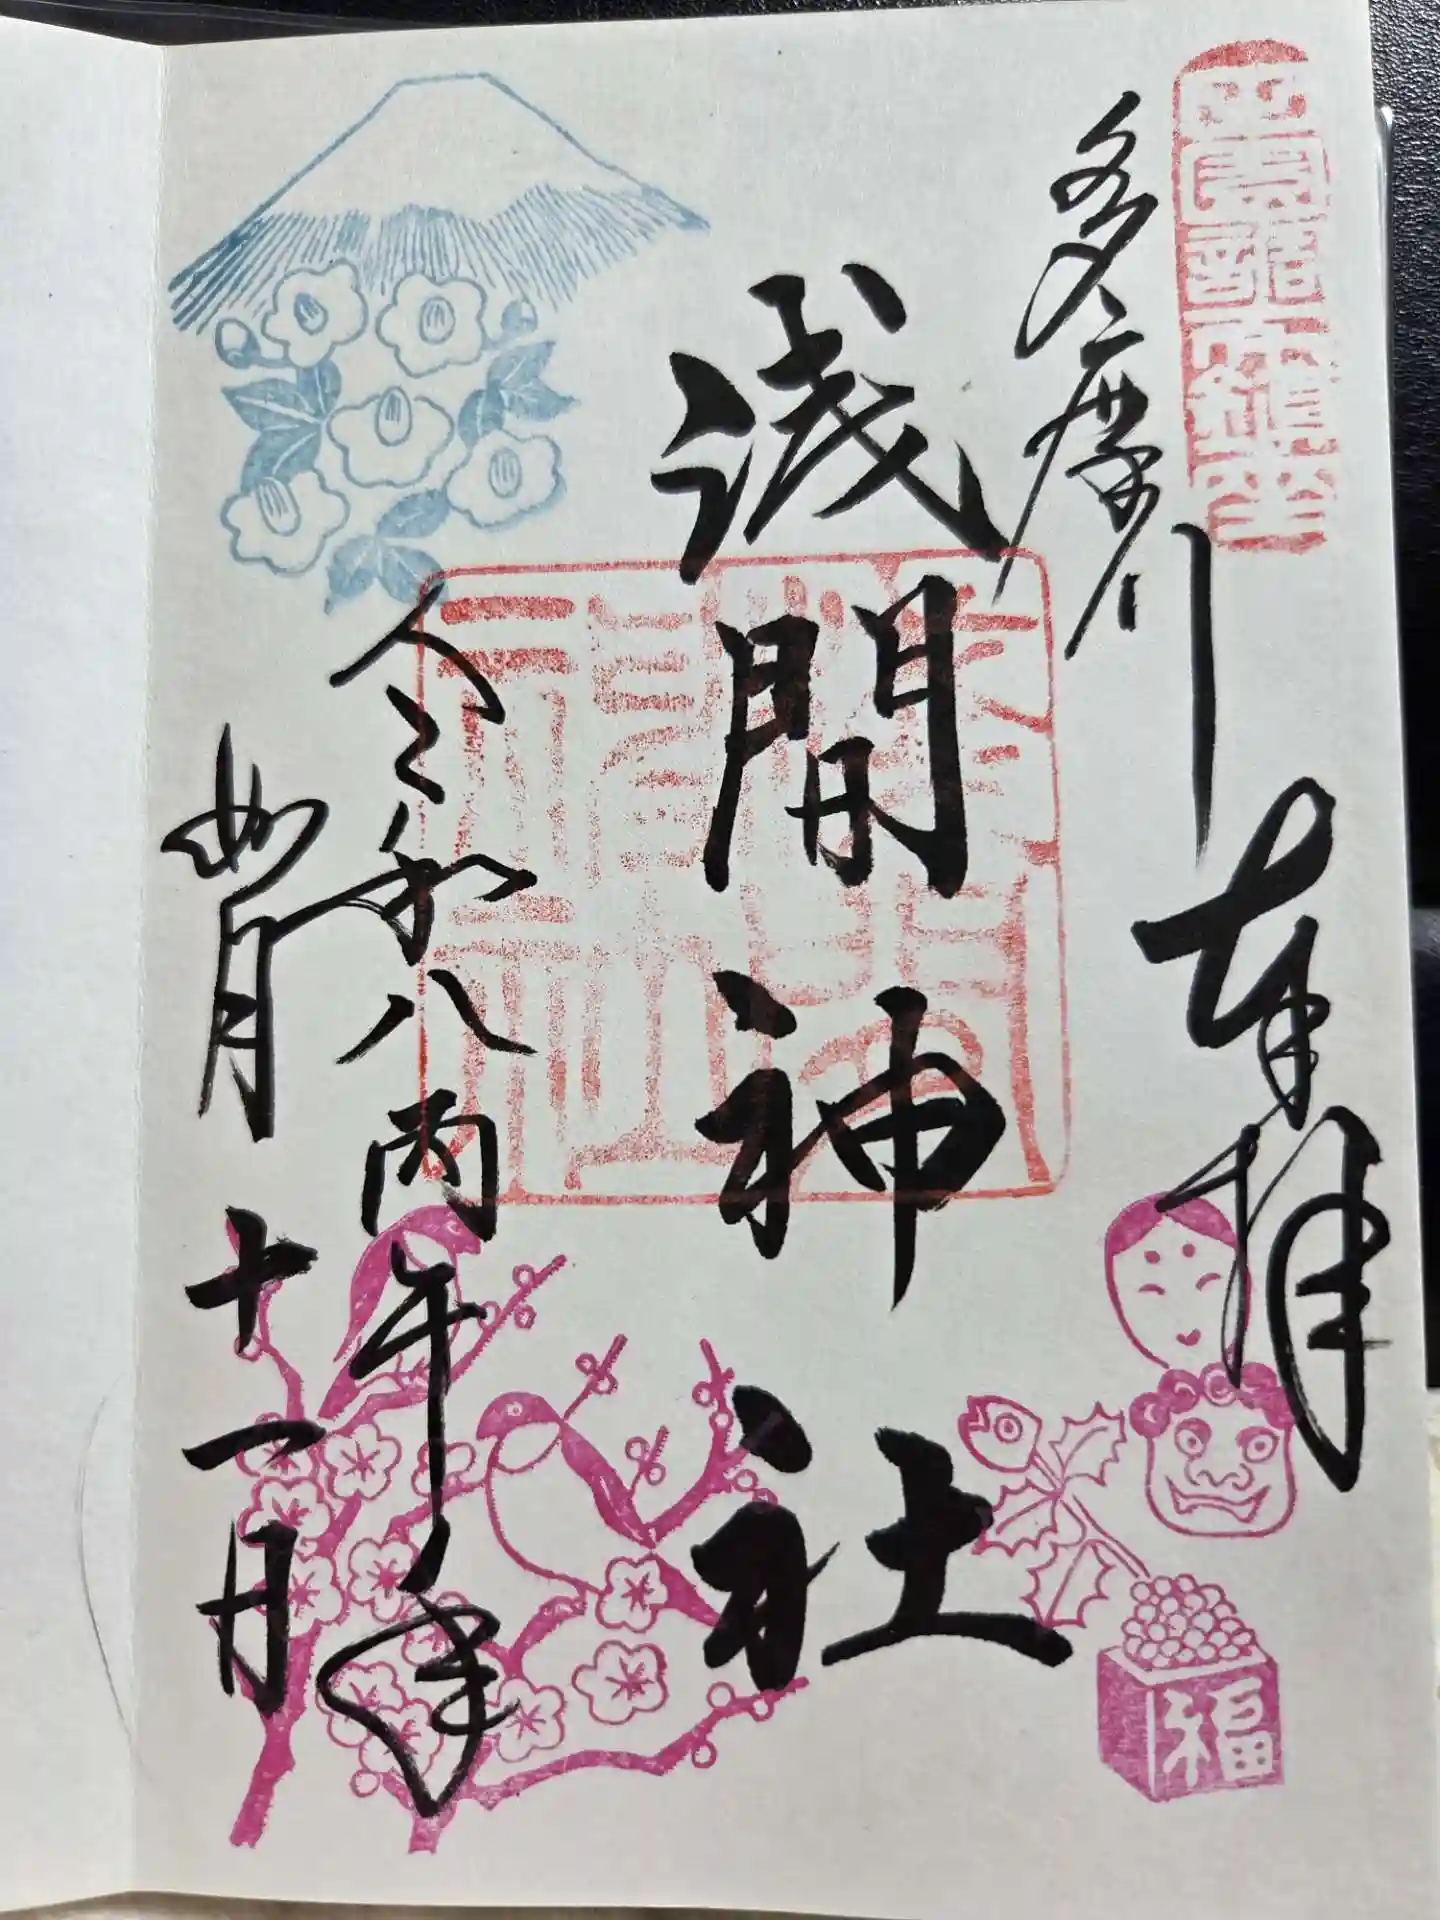 奉拝
多摩川
浅間神社
令和八丙午年
如月
十一日
福